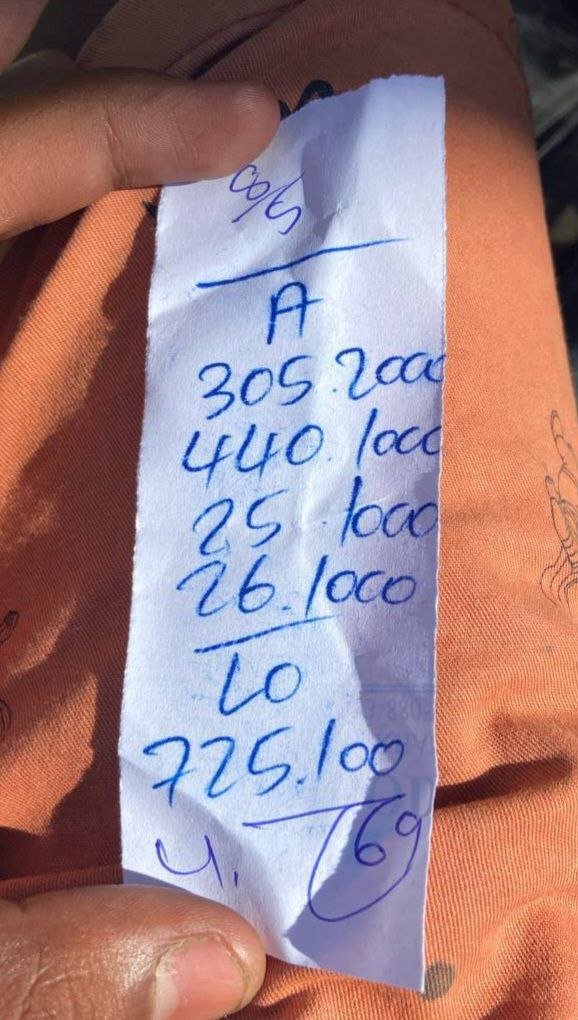 9/5
A
305.2000
440.1000
25.1000
26.1000
LO
725.100
69